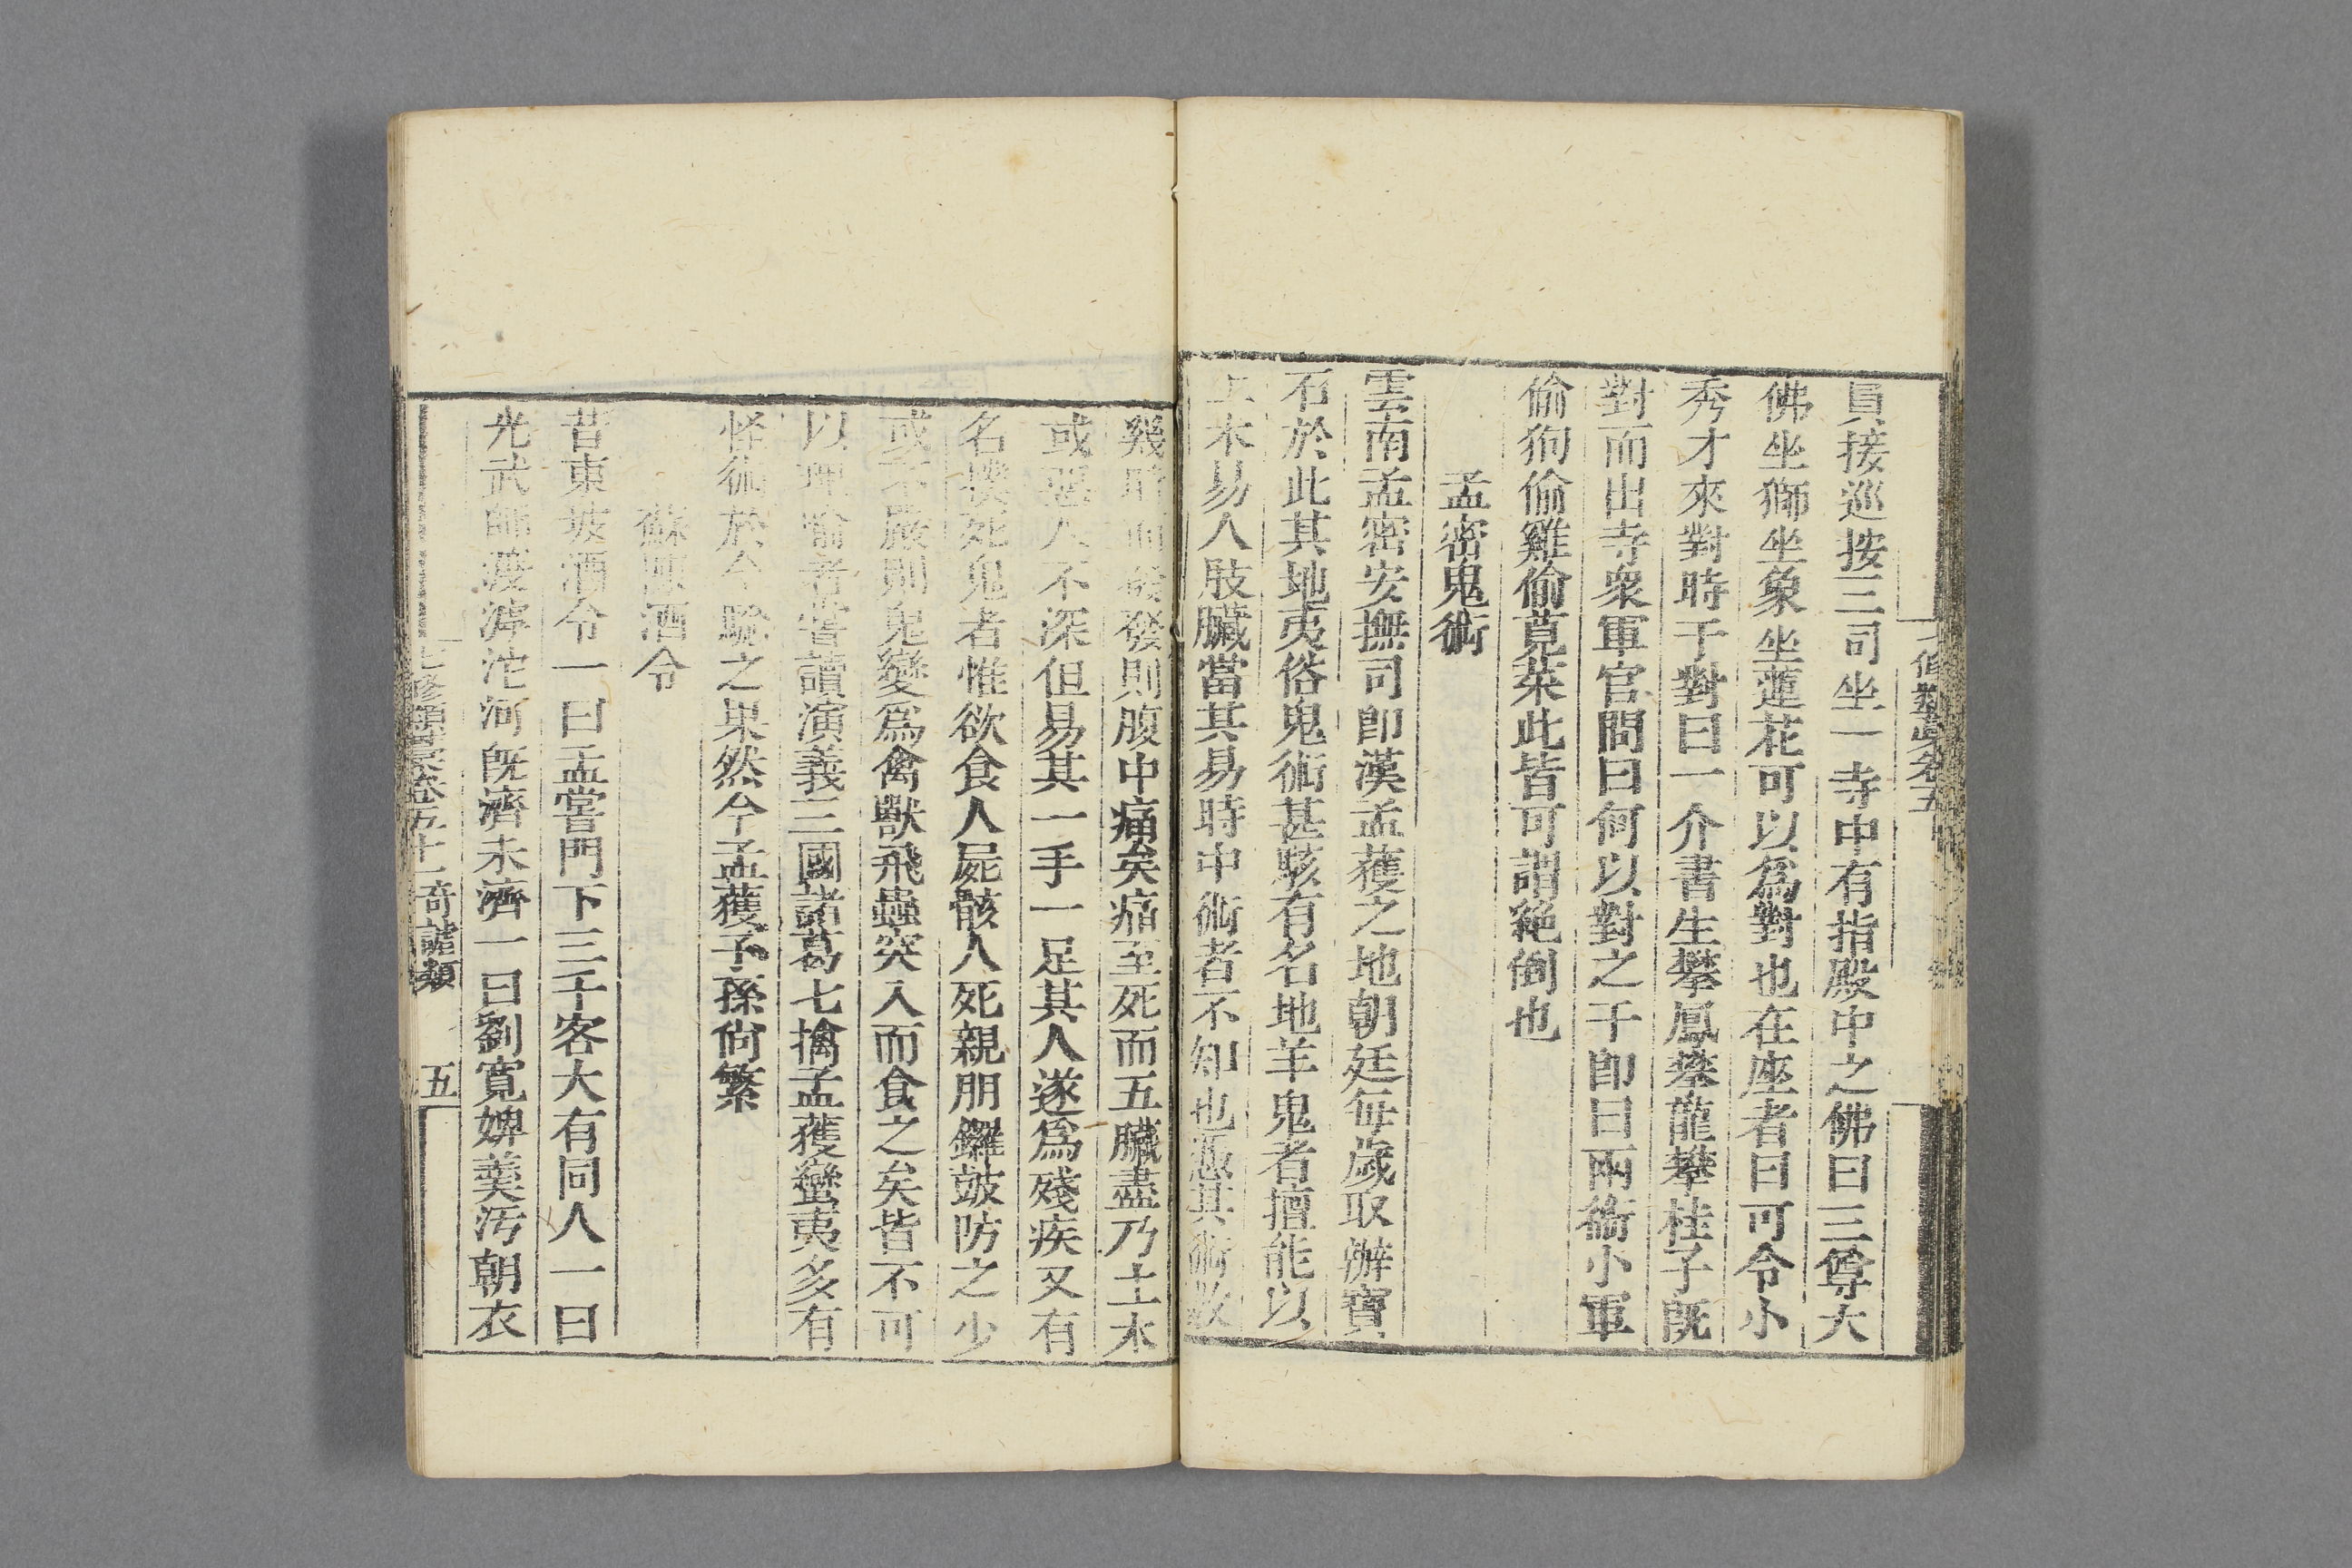 員接巡按三司坐一寺中有指殿中之佛曰三尊大
佛坐獅坐象坐蓮花可以爲對也在座者曰可令小
秀才來對時于對曰一介書生攀鳳攀龍攀桂子既
對而出寺衆軍官問曰何以對之于即曰兩衛小軍
偷狗偷雞偷莧菜此皆可謂絕倒也
孟密鬼術
雲南孟密安撫司即漢孟獲之地朝廷每歲取辦寶
石於此其地夷俗鬼術甚駭有名地羊鬼者擅能以
土木易人肢臟當其易時中術者不知也憑其術數
幾時而發發則腹中痛矣痛至死而五臟盡乃土木
或惡人不深但易其一手一足其人遂爲殘疾又有
名撲死鬼者惟欲食人屍骸人死親朋鑼皷防之少
或不嚴則鬼變爲禽獸飛蟲突入而食之矣皆不可
以理喻者嘗讀演義三國諸葛七擒孟獲蠻夷多有
怪術於今驗之果然今孟獲子孫尙繁
蘇陳酒令
昔東坡酒令一曰孟嘗門下三千客大有同人一曰
光武師渡滹沱河既濟未濟一曰劉寬婢羹汚朝衣
七修類稾卷五十一奇謔類 五